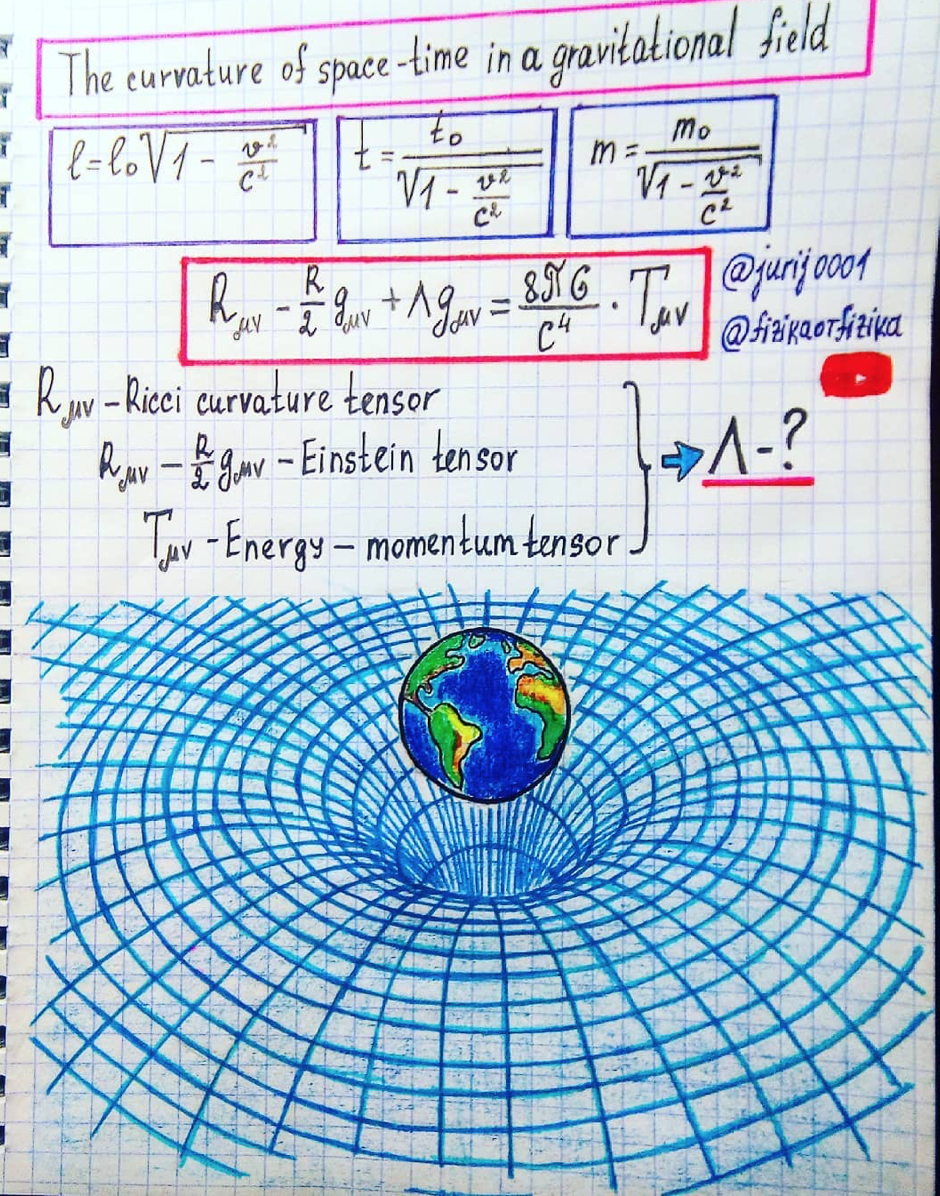 The curvature of space-time in a gravitational field
l = l₀√1 - v²/c²
t = t₀/√1 - v²/c²
m = m₀/√1 - v²/c²
Rμν - R/2 gμν + Λgμν = 8πG/c⁴ · Tμν
@jurij0001
@fizikaотfizika
Rμν - Ricci curvature tensor
Rμν - R/2 gμν - Einstein tensor
Λ - ?
Tμν - Energy - momentum tensor